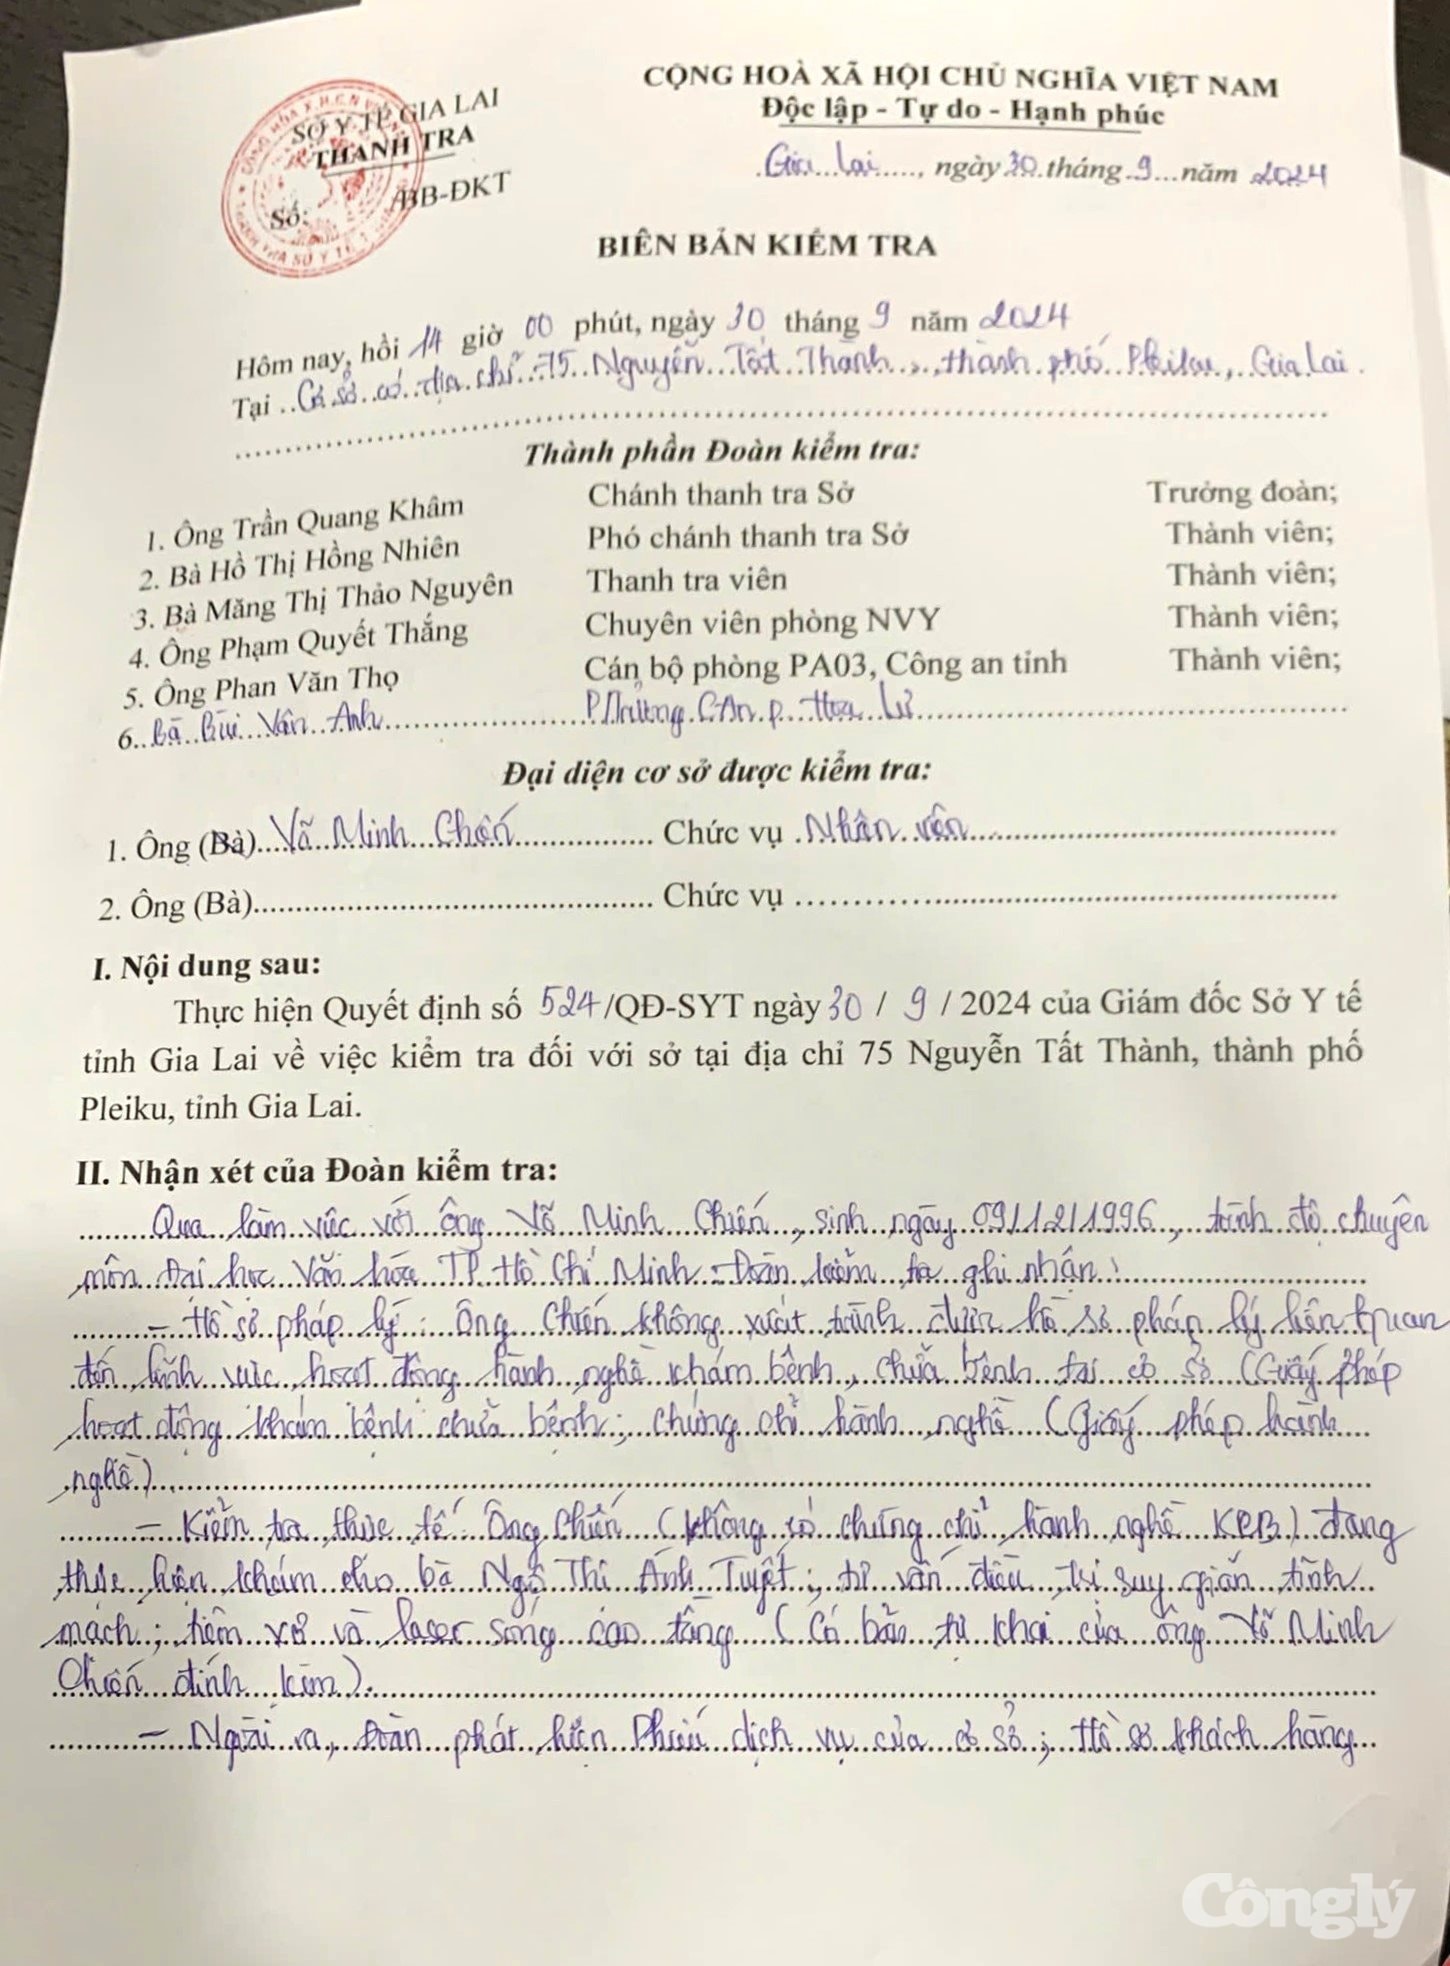 CỘNG HOÀ XÃ HỘI CHỦ NGHĨA VIỆT NAM
Độc lập - Tự do - Hạnh phúc
SỞ Y TẾ GIA LAI
THANH TRA
Số: /BB-ĐKT
Gia Lai, ngày 30 tháng 9 năm 2024
BIÊN BẢN KIỂM TRA
Hôm nay, hồi 14 giờ 00 phút, ngày 30 tháng 9 năm 2024
Tại Cơ sở có địa chỉ 75 Nguyễn Tất Thành, thành phố Pleiku, Gia Lai.
Thành phần Đoàn kiểm tra:
1. Ông Trần Quang Khâm Chánh thanh tra Sở Trưởng đoàn;
2. Bà Hồ Thị Hồng Nhiên Phó chánh thanh tra Sở Thành viên;
3. Bà Măng Thị Thảo Nguyên Thanh tra viên Thành viên;
4. Ông Phạm Quyết Thắng Chuyên viên phòng NVY Thành viên;
5. Ông Phan Văn Thọ Cán bộ phòng PA03, Công an tỉnh Thành viên;
6. Bà Bùi Vân Anh P.Trưởng CAn p. Hoa Lư
Đại diện cơ sở được kiểm tra:
1. Ông (Bà) Võ Minh Chiến Chức vụ Nhân viên
2. Ông (Bà) Chức vụ
I. Nội dung sau:
Thực hiện Quyết định số 524/QĐ-SYT ngày 30 / 9 / 2024 của Giám đốc Sở Y tế
tỉnh Gia Lai về việc kiểm tra đối với sở tại địa chỉ 75 Nguyễn Tất Thành, thành phố
Pleiku, tỉnh Gia Lai.
II. Nhận xét của Đoàn kiểm tra:
Qua làm việc với ông Võ Minh Chiến, sinh ngày 09/12/1996, trình độ chuyên
môn Đại học Văn hóa TP Hồ Chí Minh. Đoàn kiểm tra ghi nhận:
- Hồ sơ pháp lý: Ông Chiến không xuất trình được hồ sơ pháp lý liên quan
đến lĩnh vực, hoạt động hành nghề khám bệnh, chữa bệnh tại cơ sở (Giấy phép
hoạt động khám bệnh chữa bệnh; chứng chỉ hành nghề (Giấy phép hành
nghề).
- Kiểm tra thực tế: Ông Chiến (không có chứng chỉ hành nghề KCB) đang
thực hiện khám cho bà Ngô Thị Ánh Tuyết; tư vấn điều trị suy giãn tĩnh
mạch; tiêm xơ và laser sóng cao tầng (Có bản tự khai của ông Võ Minh
Chiến đính kèm).
- Ngoài ra, Đoàn phát hiện Phiếu dịch vụ của cơ sở; Hồ sơ khách hàng
Cônglý